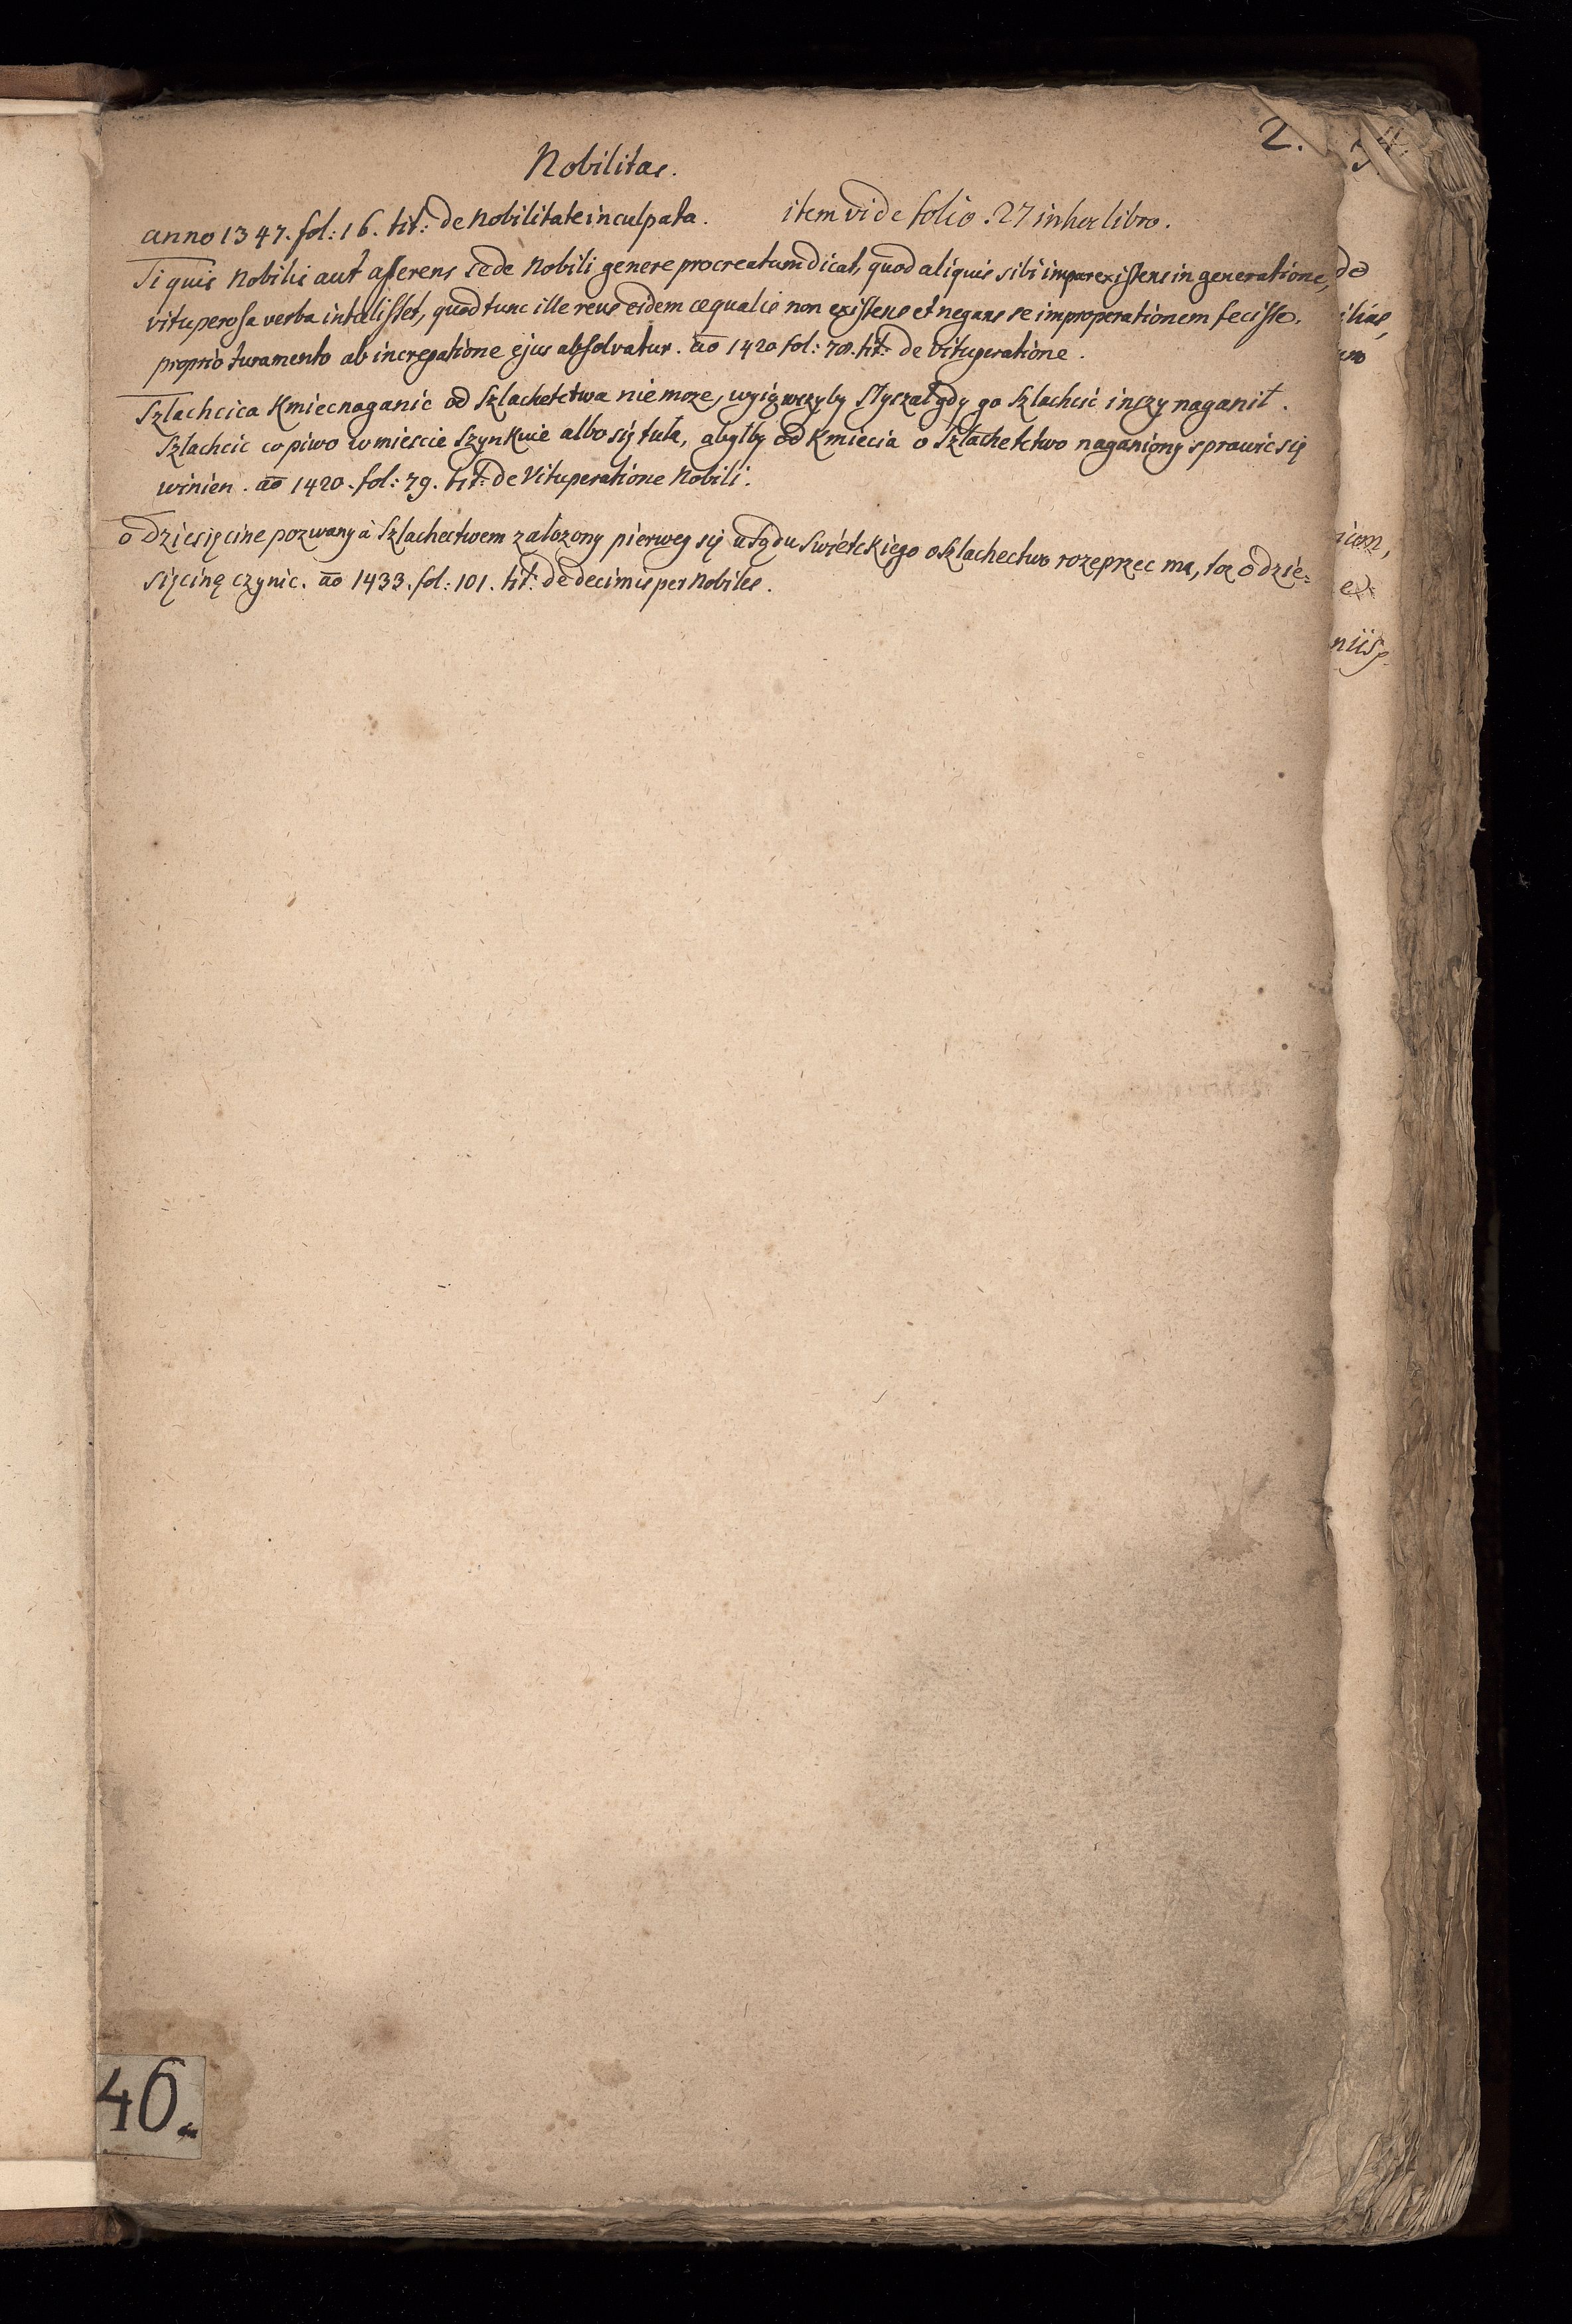 2.
Nobilitas.
anno 1347. fol: 16. tit: de Nobilitate inculpata. item vide folio. 27 in hoc libro.
Si quis Nobilis aut asserens se de Nobili genere procreatum dicat, quod aliquis sibi impar existens in generatione,
vituperosa verba intulisset, quod tunc ille reus eidem æqualis non existens et negans se improperationem fecisse,
proprio iuramento ab increpatione ejus absolvatur. ao 1420 fol: 78. tit: de Vituperatione.
Szlachcica Kmiec naganic od Szlachetctwa nie moze, wyiąwszyby Słyszał gdy go Szlachcic inszy naganił.
Szlachcic co piwo w miescie Szynkuie albo się tuła, abyłby od Kmiecia o Szlachetctwo naganiony sprawic się
winien. ao 1420. fol: 79. tit: de Vituperatione Nobili.
o Dziesięcine pozwany à Szlachectwem załozony pierwey się u Sądu Swietckiego o Szlachectwo rozeprzec ma, toz o dzie=
sięcinę czynic. ao 1433. fol: 101. tit: de decimis per Nobiles.
46.